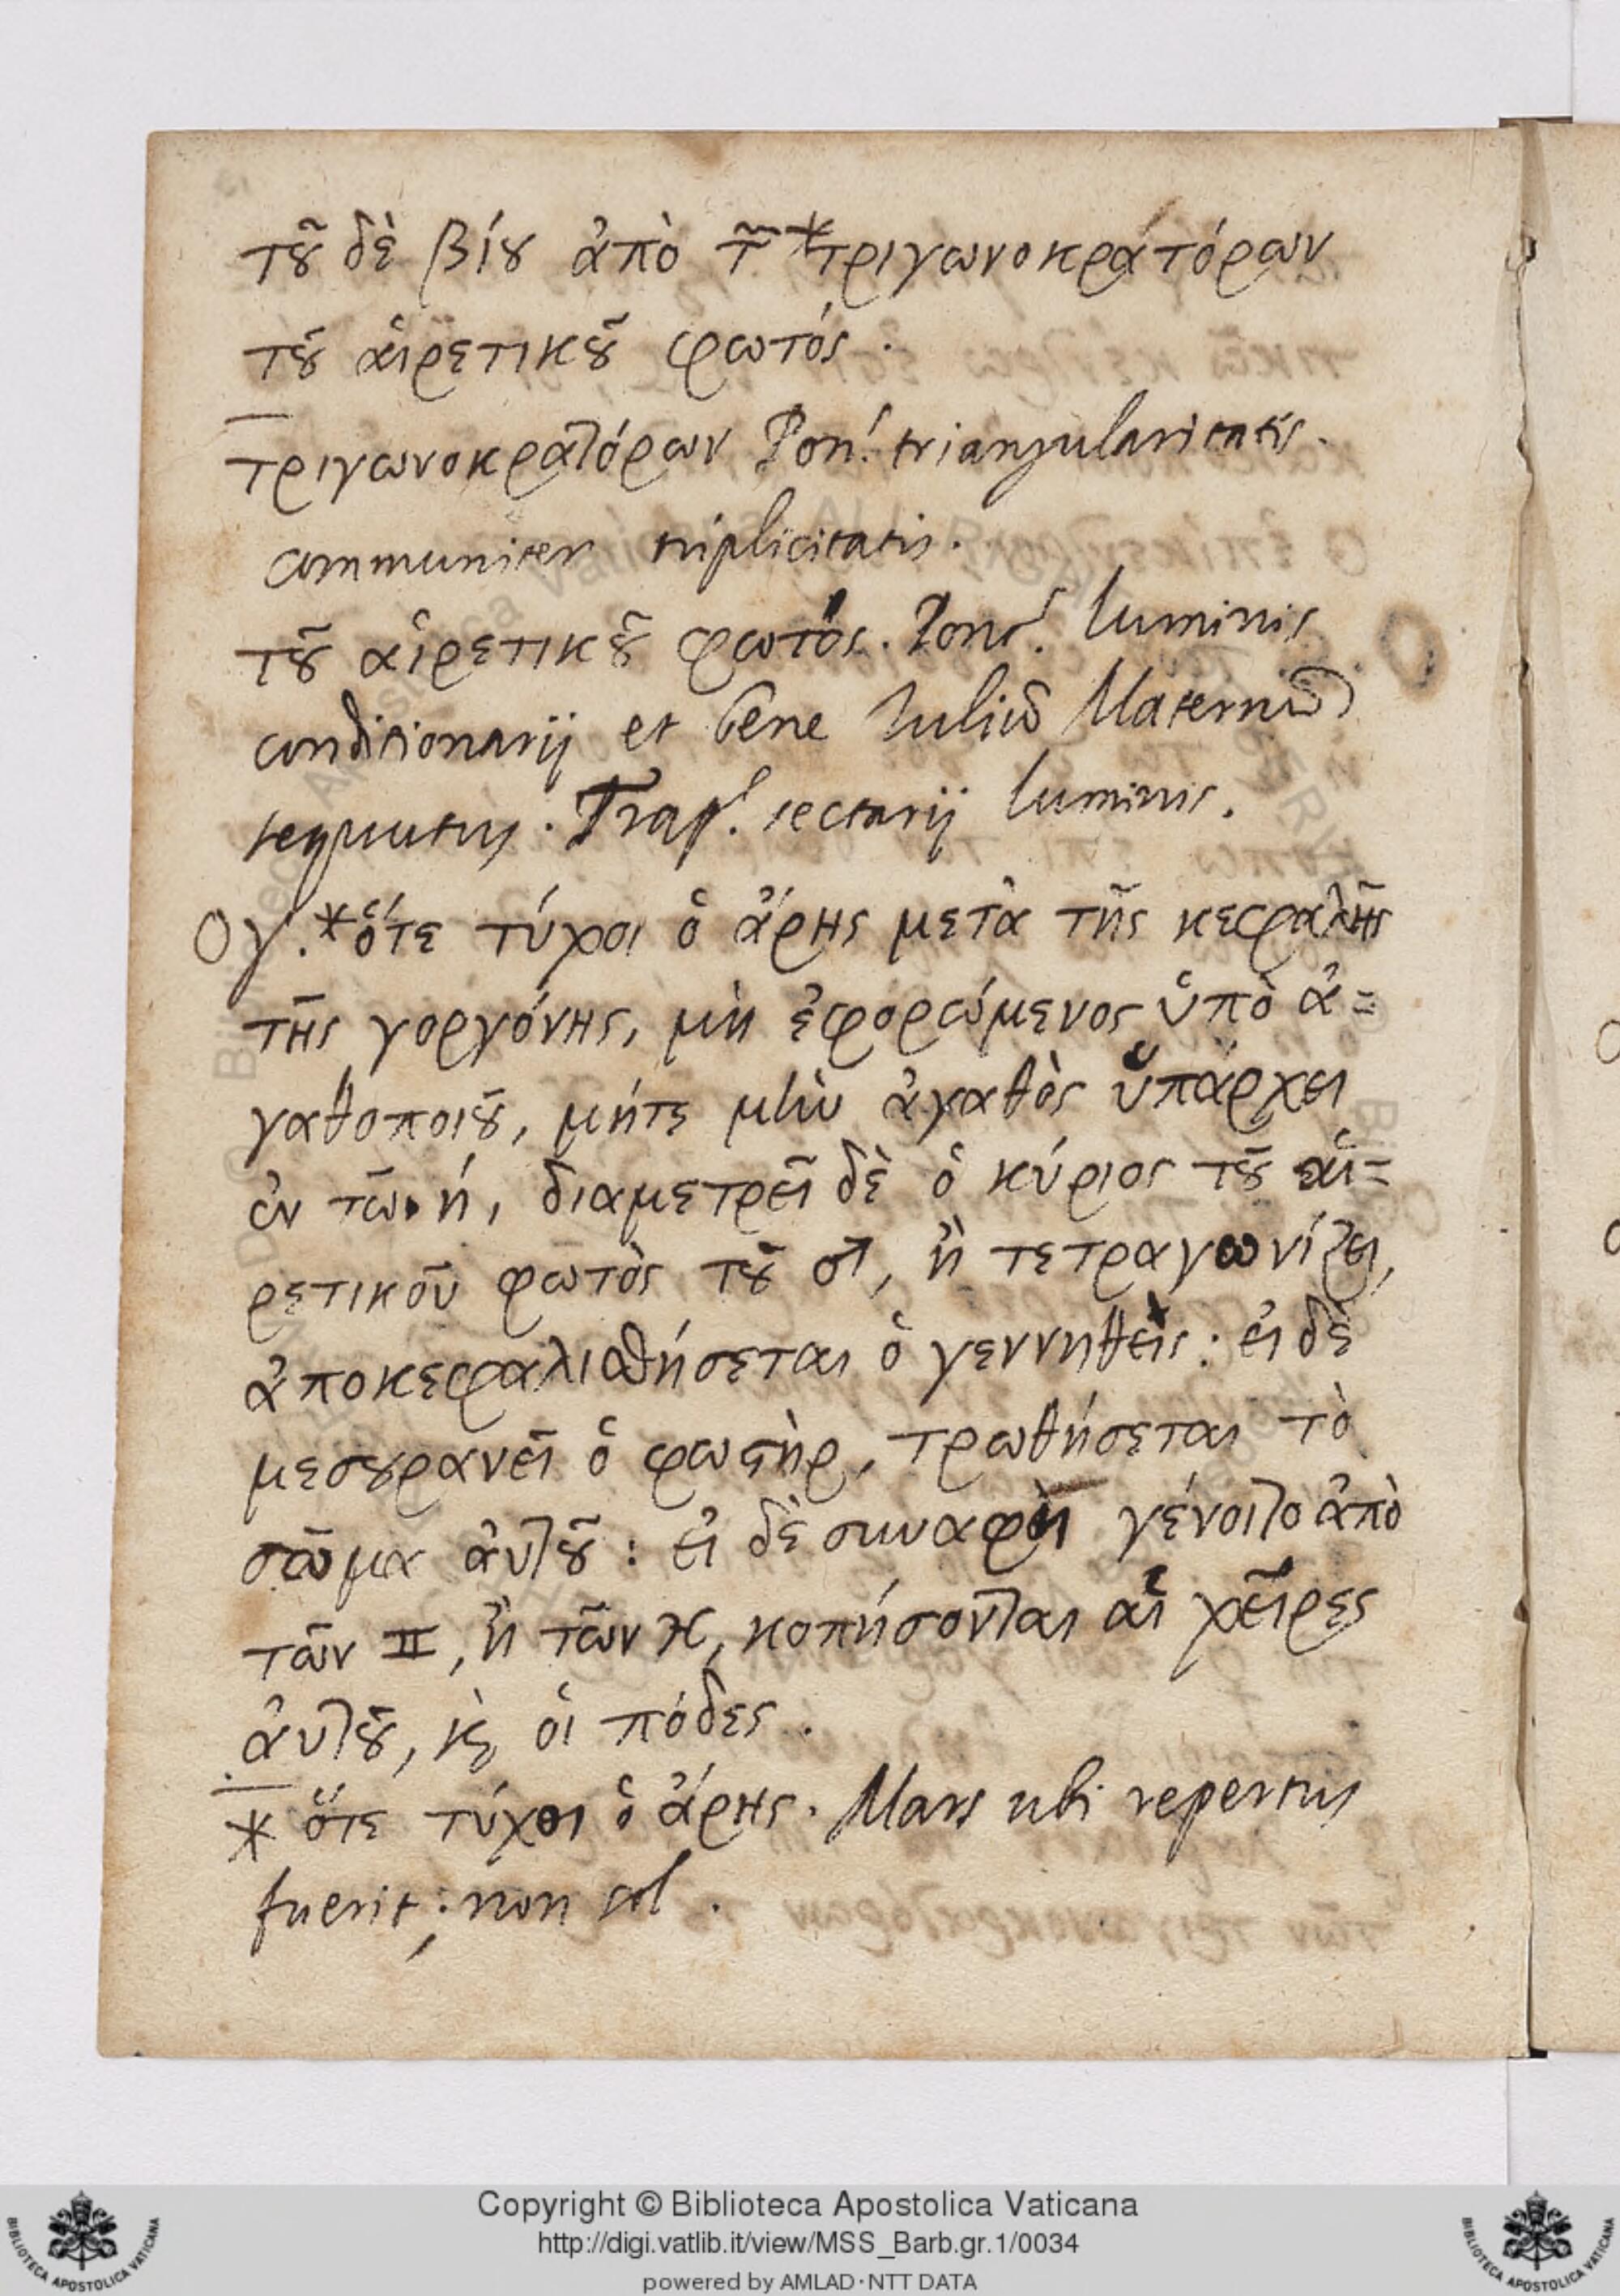 τȣ͂ δὲ βίȣ ἀπὸ τ͂ *τριγωνοκρατόρων
τȣ͂ ἁιρετικȣ͂ φωτός.
τριγωνοκρατόρων Pont. triangularitatis.
communiter triplicitatis.
τȣ͂ ἁιρετικȣ͂ φωτός. Pont. luminis
conditionarij et bene Iuliũ Maternũ
sequutus. Trap. sectarij luminis.
ογ. *ὅτε τύχοι ὁ ἄρης μετὰ τῆς κεφαλῆς
τῆς γοργόνης, μὴ ἐφορώμενος ὑπὸ ἀ=
γαθοποιȣ, μήτε μὴν ἀγαθὸς ὑπάρχει
ἐν τῶ ή, διαμετρεῖ δὲ ὁ κύριος τȣ͂ αἱ=
ρετικοῦ φωτὸς τȣ͂ ♂, ἢ τετραγωνίζει,
ἀποκεφαλισθήσεται ὁ γεννηθεὶς: εἰ δὲ
μεσȣρανεῖ ὁ φωστὴρ, τρωθήσεται τὸ
σῶμα ἀυτȣ͂: εἰ δὲ συναφὴ γένοιτο ἀπὸ
τῶν ♊, ἢ τῶν ♓, κοπήσονται αἱ χεῖρες
ἀυτȣ͂, ϗ̀ ὁι πόδες.
* ὅτε τύχοι ὁ ἄρης. Mars ubi repertus
fuerit; non sol.
Copyright © Biblioteca Apostolica Vaticana
http://digi.vatlib.it/view/MSS_Barb.gr.1/0034
powered by AMLAD·NTT DATA
BIBLIOTECA APOSTOLICA VATICANA
BIBLIOTECA APOSTOLICA VATICANA